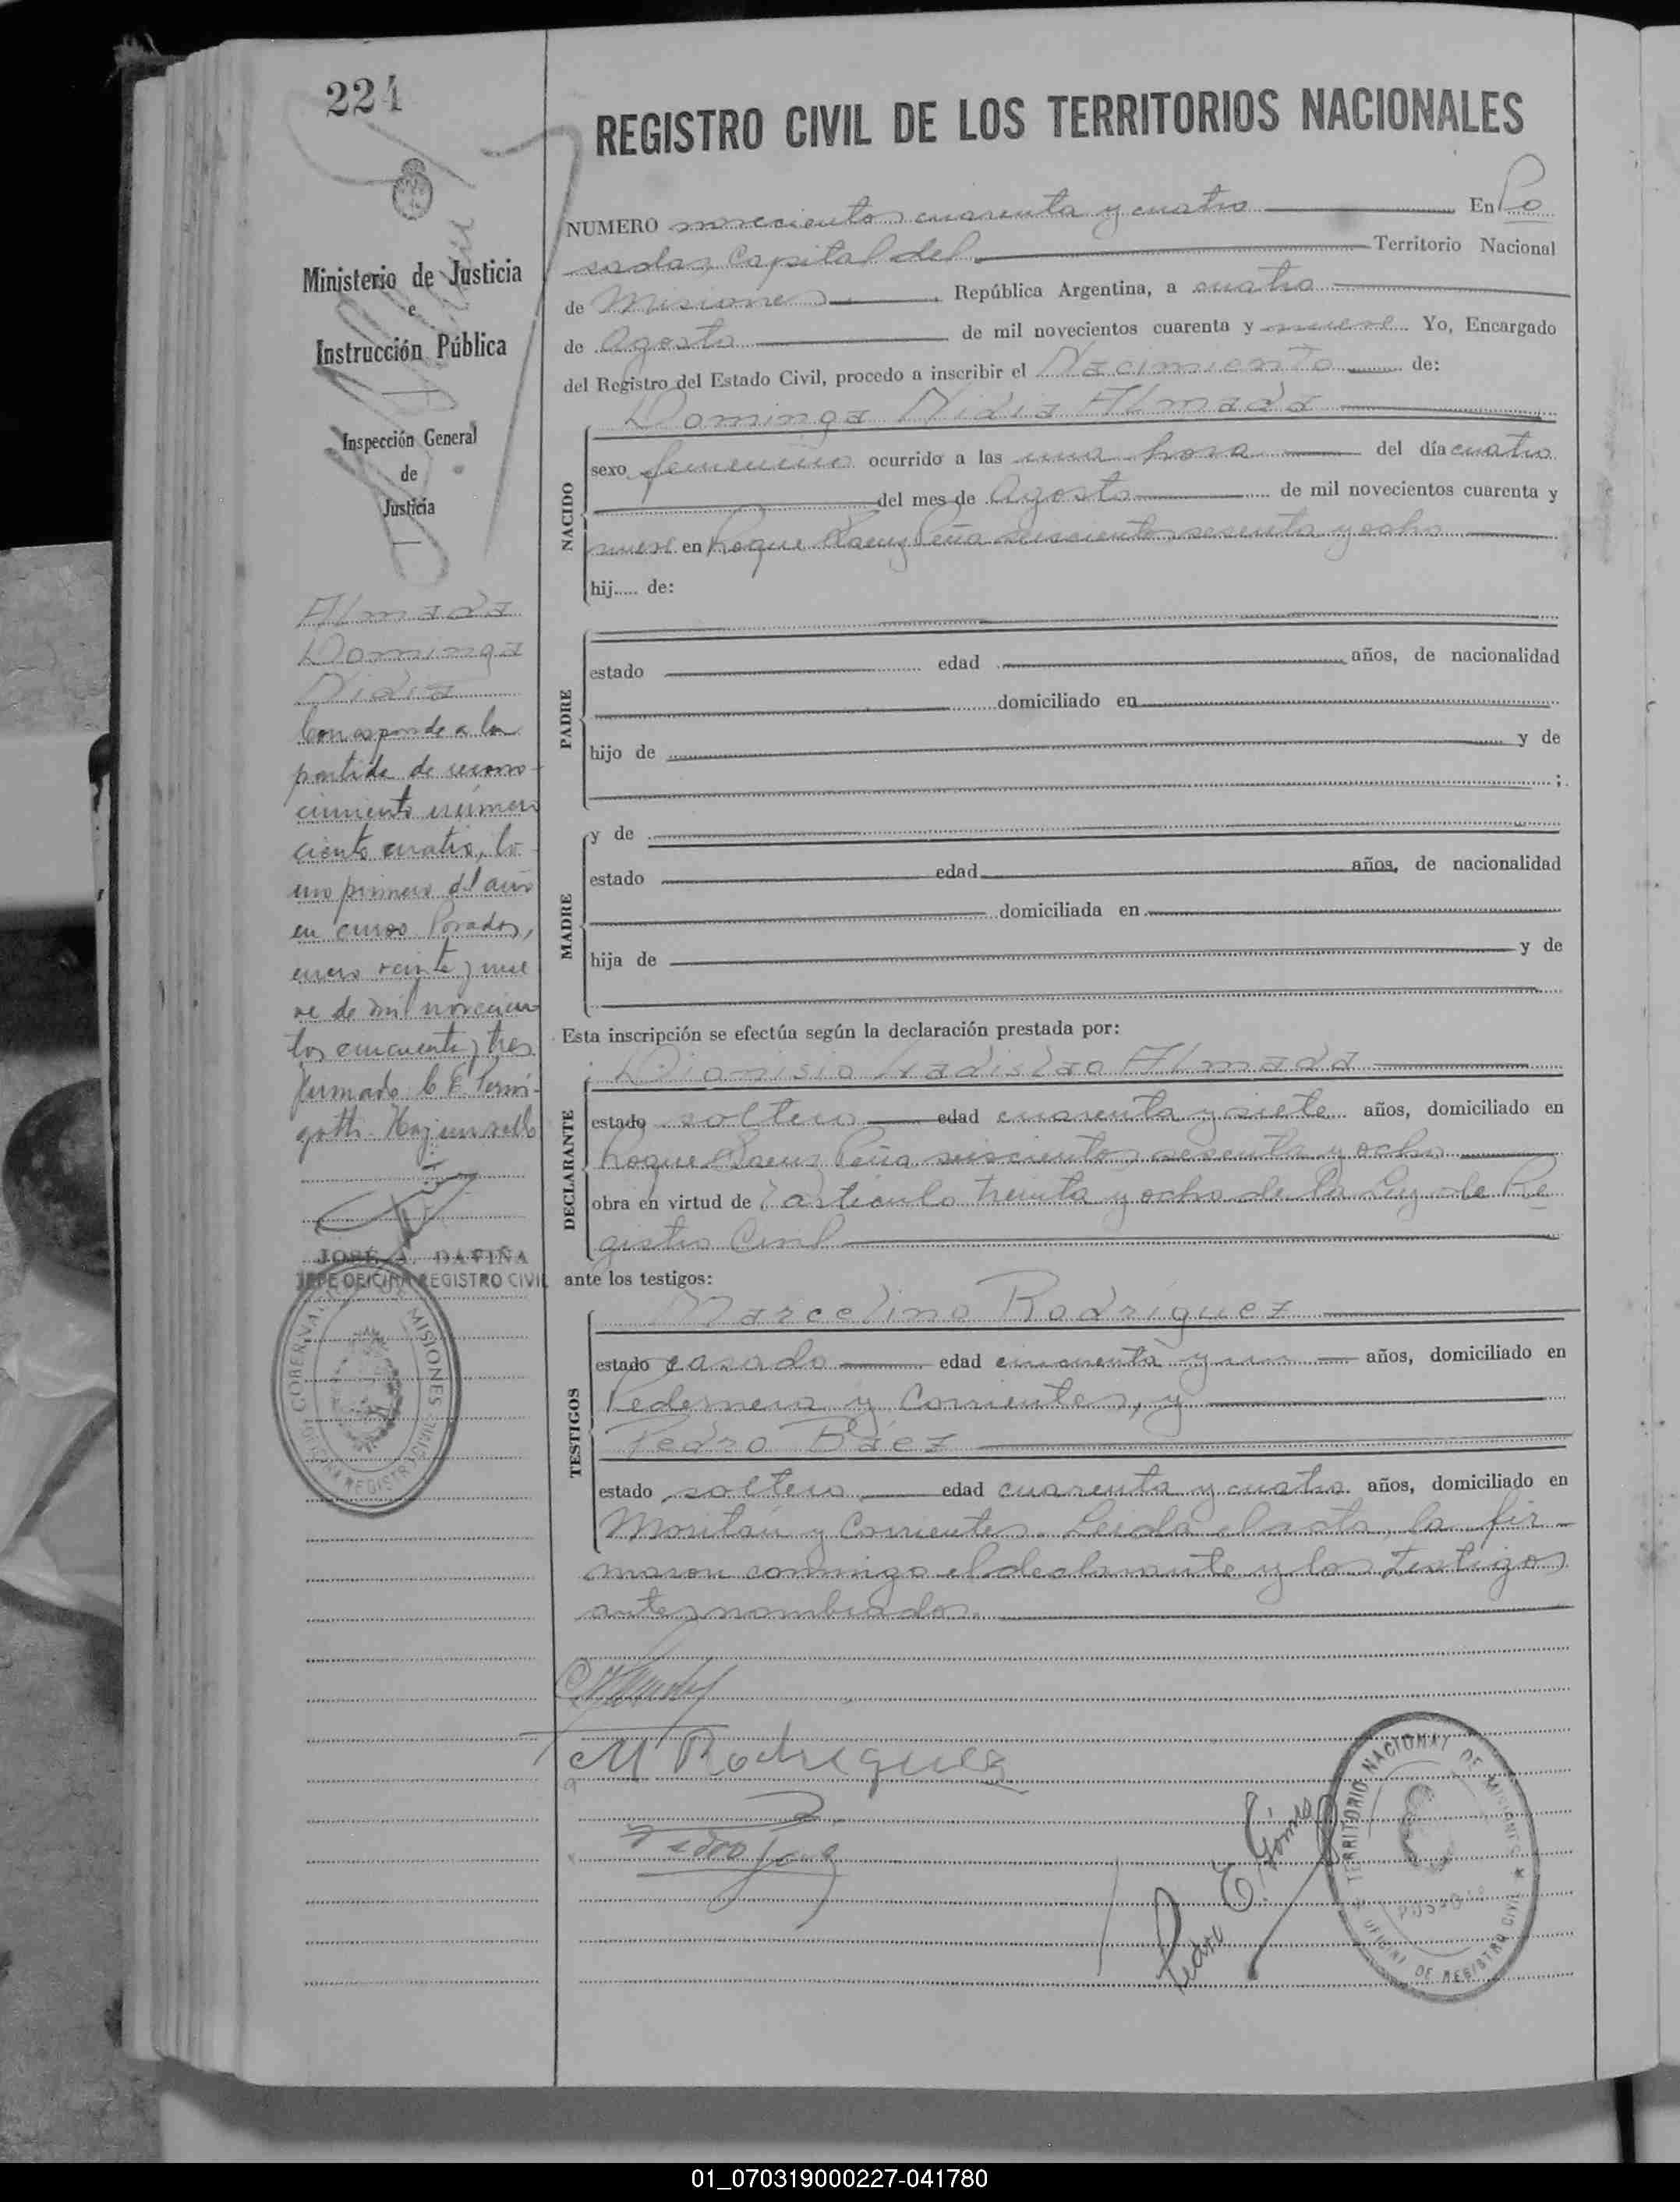 224
Ministerio de Justicia
e
Instrucción Pública
Inspección General
de
Justicia
Almada
Dominga
Nidia
Corresponde a la
partida de recono-
cimiento número
ciento cuatro, to-
mo primero del año
en curso Posadas,
enero veinte y nue
ve de mil novecien
tos cincuenta y tres
Firmado C. E.
Hay un sello
JOSÉ A. DAVIÑA
JEFE OFICINA REGISTRO CIVIL
GOBERNA MISIONES
OFICINA REGISTRO CIVIL
REGISTRO CIVIL DE LOS TERRITORIOS NACIONALES
NUMERO novecientos cuarenta y cuatro En Po
sadas, Capital del Territorio Nacional
de Misiones República Argentina, a cuatro
de Agosto de mil novecientos cuarenta y nueve Yo, Encargado
del Registro del Estado Civil, procedo a inscribir el Nacimiento de:
Dominga Nidia Almada
NACIDO
sexo femenino ocurrido a las una hora del día cuatro
del mes de Agosto de mil novecientos cuarenta y
nueve en Roque Saenz Peña seiscientos sesenta y ocho
hij..... de:
PADRE
estado edad años, de nacionalidad
domiciliado en
hijo de y de
;
MADRE
y de
estado edad años, de nacionalidad
domiciliada en
hija de y de
Esta inscripción se efectúa según la declaración prestada por:
DECLARANTE
Dionisio Ladislao Almada
estado soltero edad cuarenta y siete años, domiciliado en
Roque Saenz Peña seiscientos sesenta y ocho
obra en virtud de artículo treinta y ocho de la Ley de Re
gistro Civil
ante los testigos:
TESTIGOS
Marcelino Rodríguez
estado casado edad cincuenta y un años, domiciliado en
Pedernera y Corrientes, y
Pedro Báez
estado soltero edad cuarenta y cuatro años, domiciliado en
y Corrientes. Leída el acta, la fir-
maron conmigo el declarante y los testigos
antes nombrados.
M Rodriguez
Pedro
Pedro E. Gómez
TERRITORIO NACIONAL DE MISIONES
POSADAS
OFICINA DE REGISTRO CIVIL
01_070319000227-041780